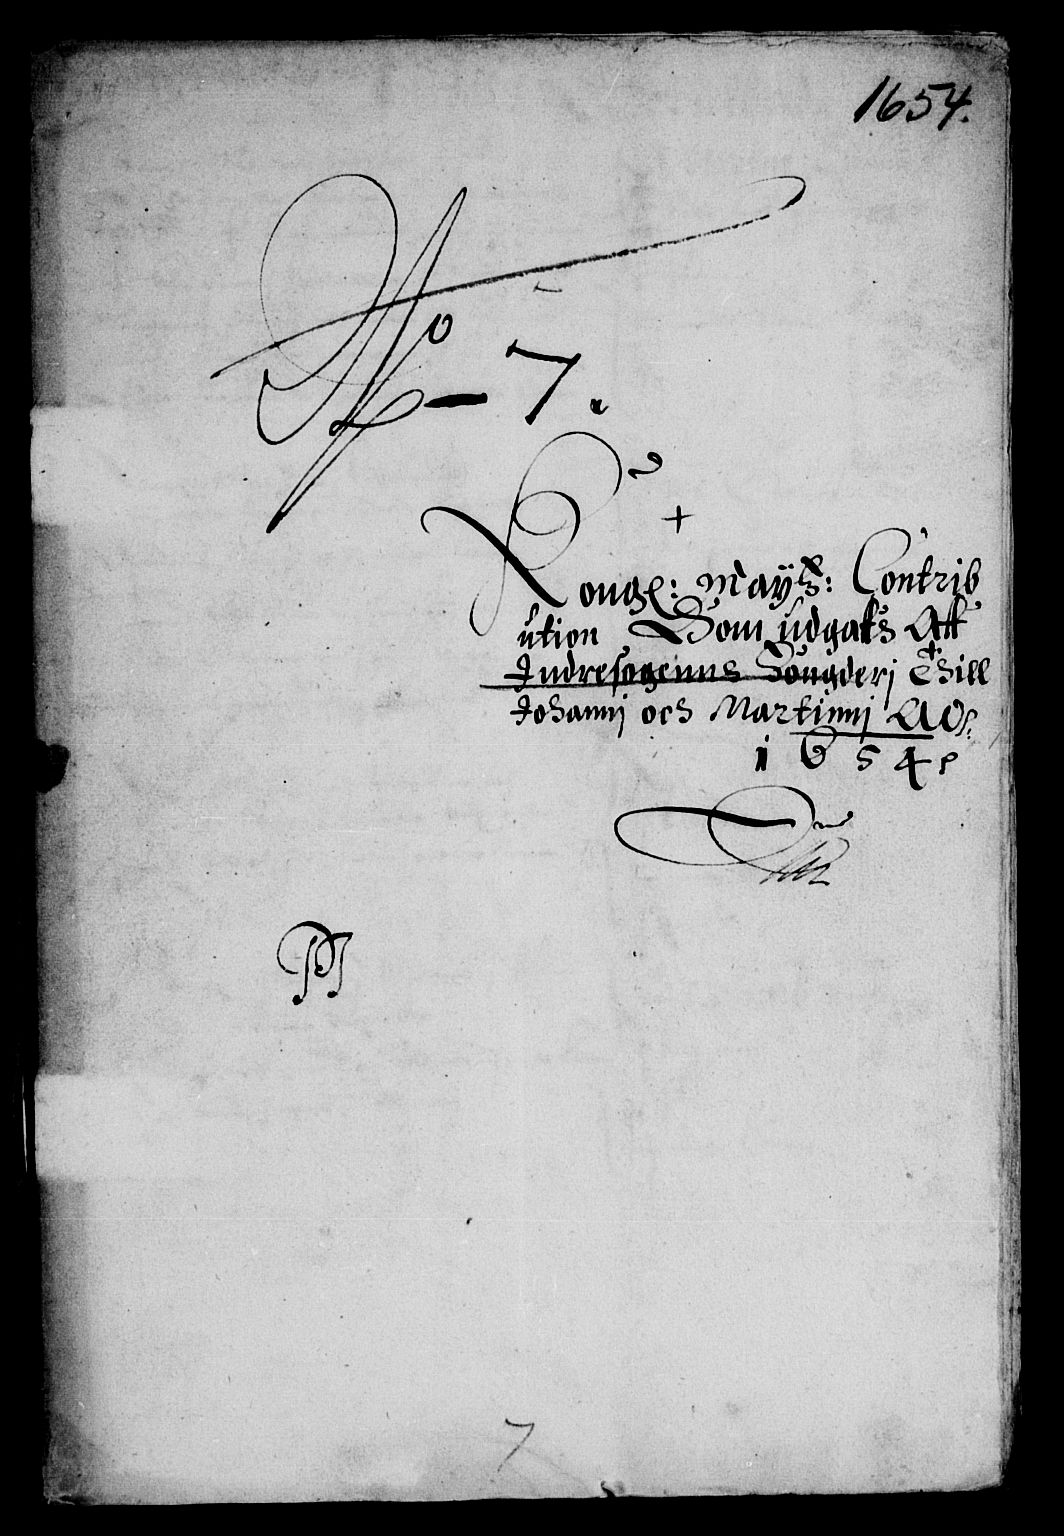 1654.
No - 7.
Kongl: Mayts: Contrib
ution Som udgafs Aff
Indresogenns Songderj Thill
Johannj och Martinnj Ao.
1654
7